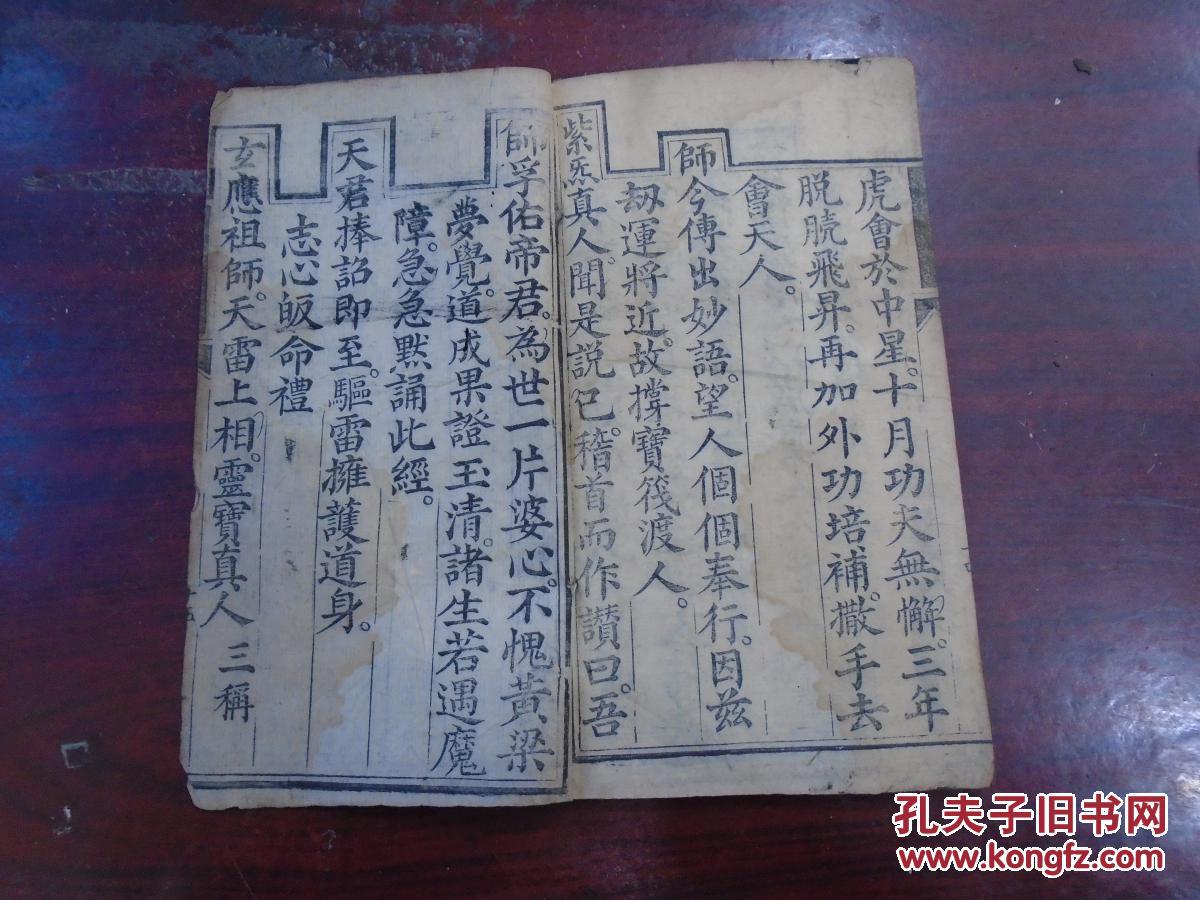 虎會於中星。十月功夫無懈。三年
脱胱飛昇。再加外功培補。撒手去
會天人。
師今傳出妙語。望人個個奉行。因兹
刼運將近。故撑寶筏渡人。
紫炁真人。聞是説已。稽首而作讃曰。吾
師孚佑帝君。為世一片婆心。不愧黃梁
夢覺。道成果證玉清。諸生若遇魔
障。急急默誦此經。
天君捧詔即至。驅雷擁護道身。
志心皈命禮
玄應祖師。天雷上相。靈寶真人 三稱
孔夫子旧书网
www.kongfz.com